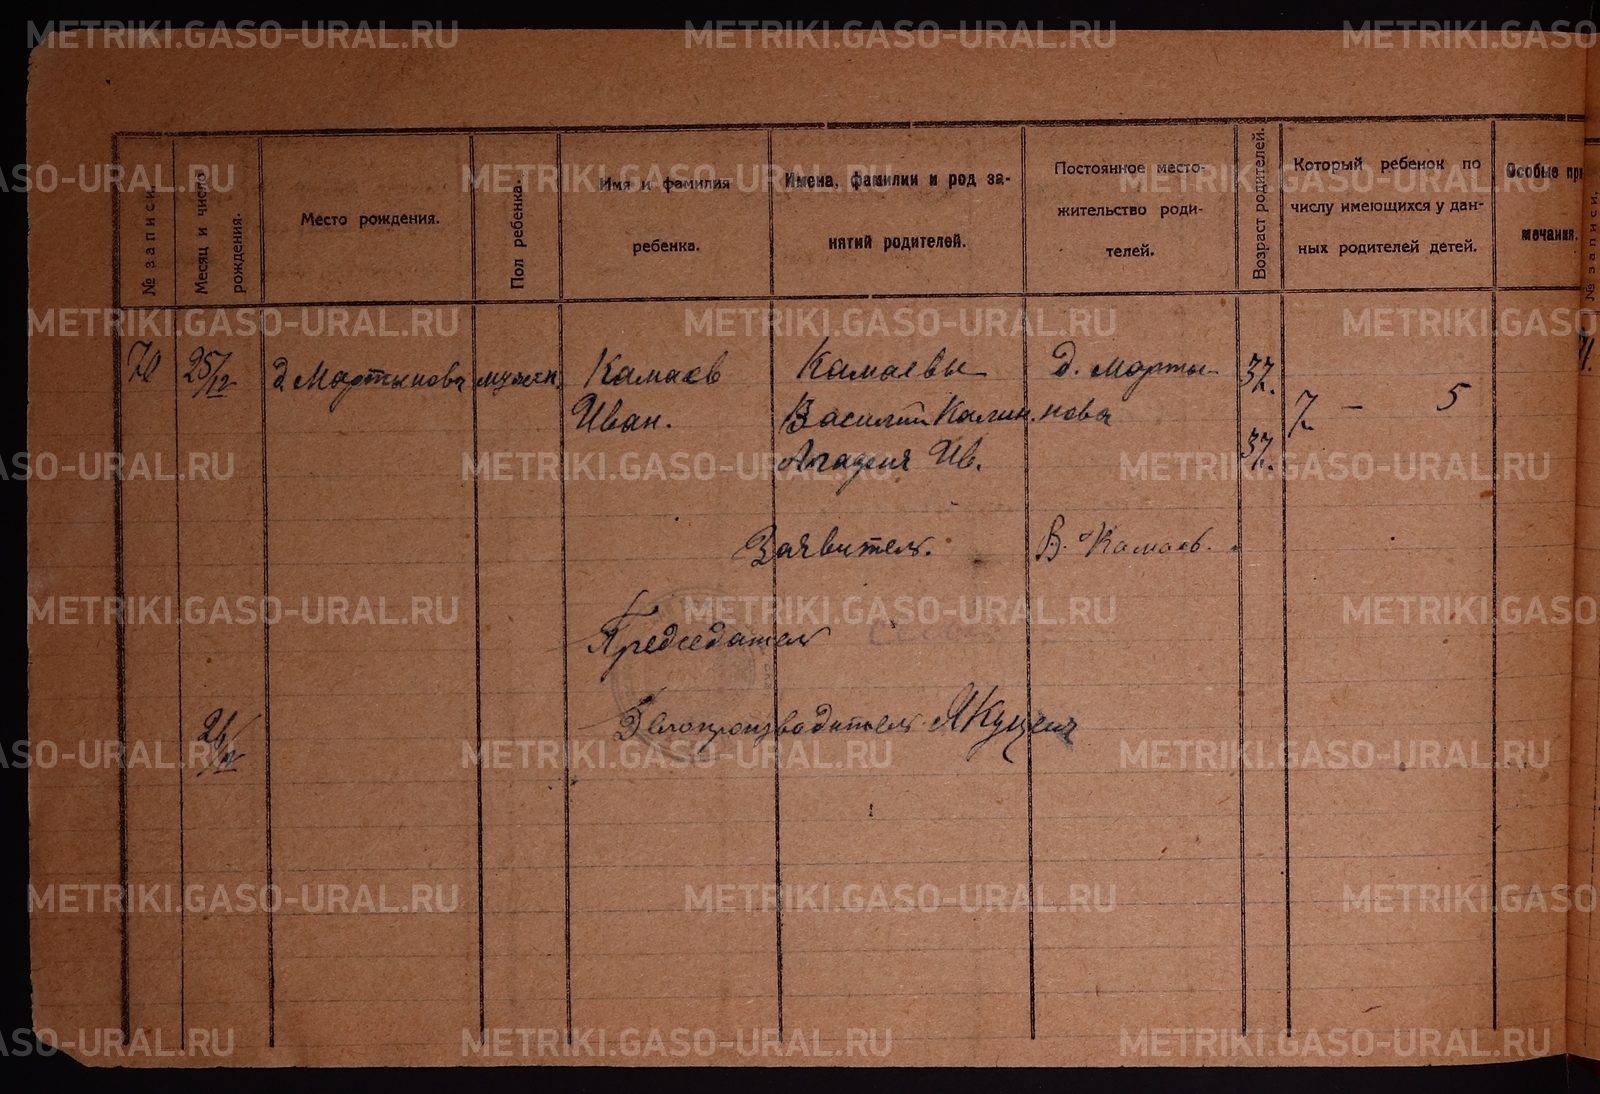 METRIKI.GASO-URAL.RU METRIKI.GASO-URAL.RU METRIKI.GASO-URAL.RU
№ записи.
Месяц и число
рождения.
Место рождения.
Пол ребенка.
Имя и фамилия
ребенка.
Имена, фамилии и род за-
нятий родителей.
Постоянное место-
жительство роди-
телей.
Возраст родителей.
Который ребенок по
числу имеющихся у дан-
ных родителей детей.
Особые при
мечания.
№ записи.
70 25/12 д. Мартынова мужск. Камаев Камаевы д. Марты- 37.
Иван. Василий Калин. нова 7 — 5
Агафия Ив. 37.
Заявитель. В. Камаев.
Председатель
26/12 Делопроизводитель